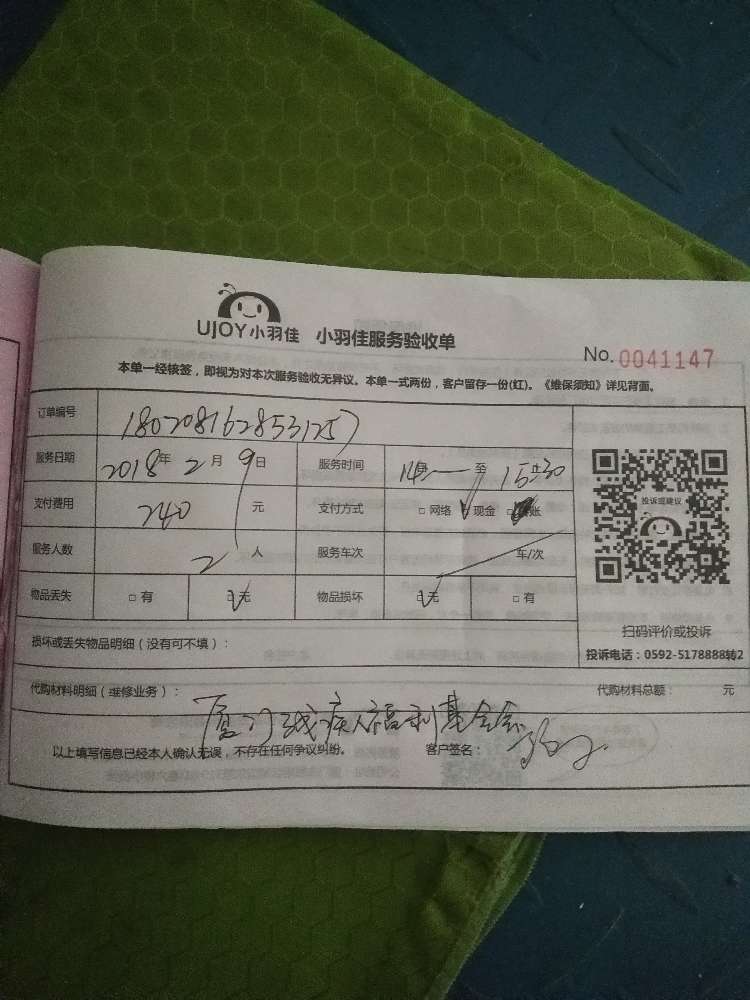 UJOY小羽佳 小羽佳服务验收单
No. 0041147
本单一经核签，即视为对本次服务验收无异议。本单一式两份，客户留存一份(红)。《维保须知》详见背面。
订单编号 180208162853125)
服务日期 2018年 2月 9日 服务时间 14 至 15:30
支付费用 240 元 支付方式 □网络 □现金 账
服务人数 2 人 服务车次 车/次
物品丢失 □有 □无 物品损坏 □无 □有
投诉或建议
扫码评价或投诉
投诉电话：0592-5178888转2
损坏或丢失物品明细（没有可不填）：
代购材料明细（维修业务）： 代购材料总额： 元
厦门残疾人福利基金会
以上填写信息已经本人确认无误，不存在任何争议纠纷。 客户签名：